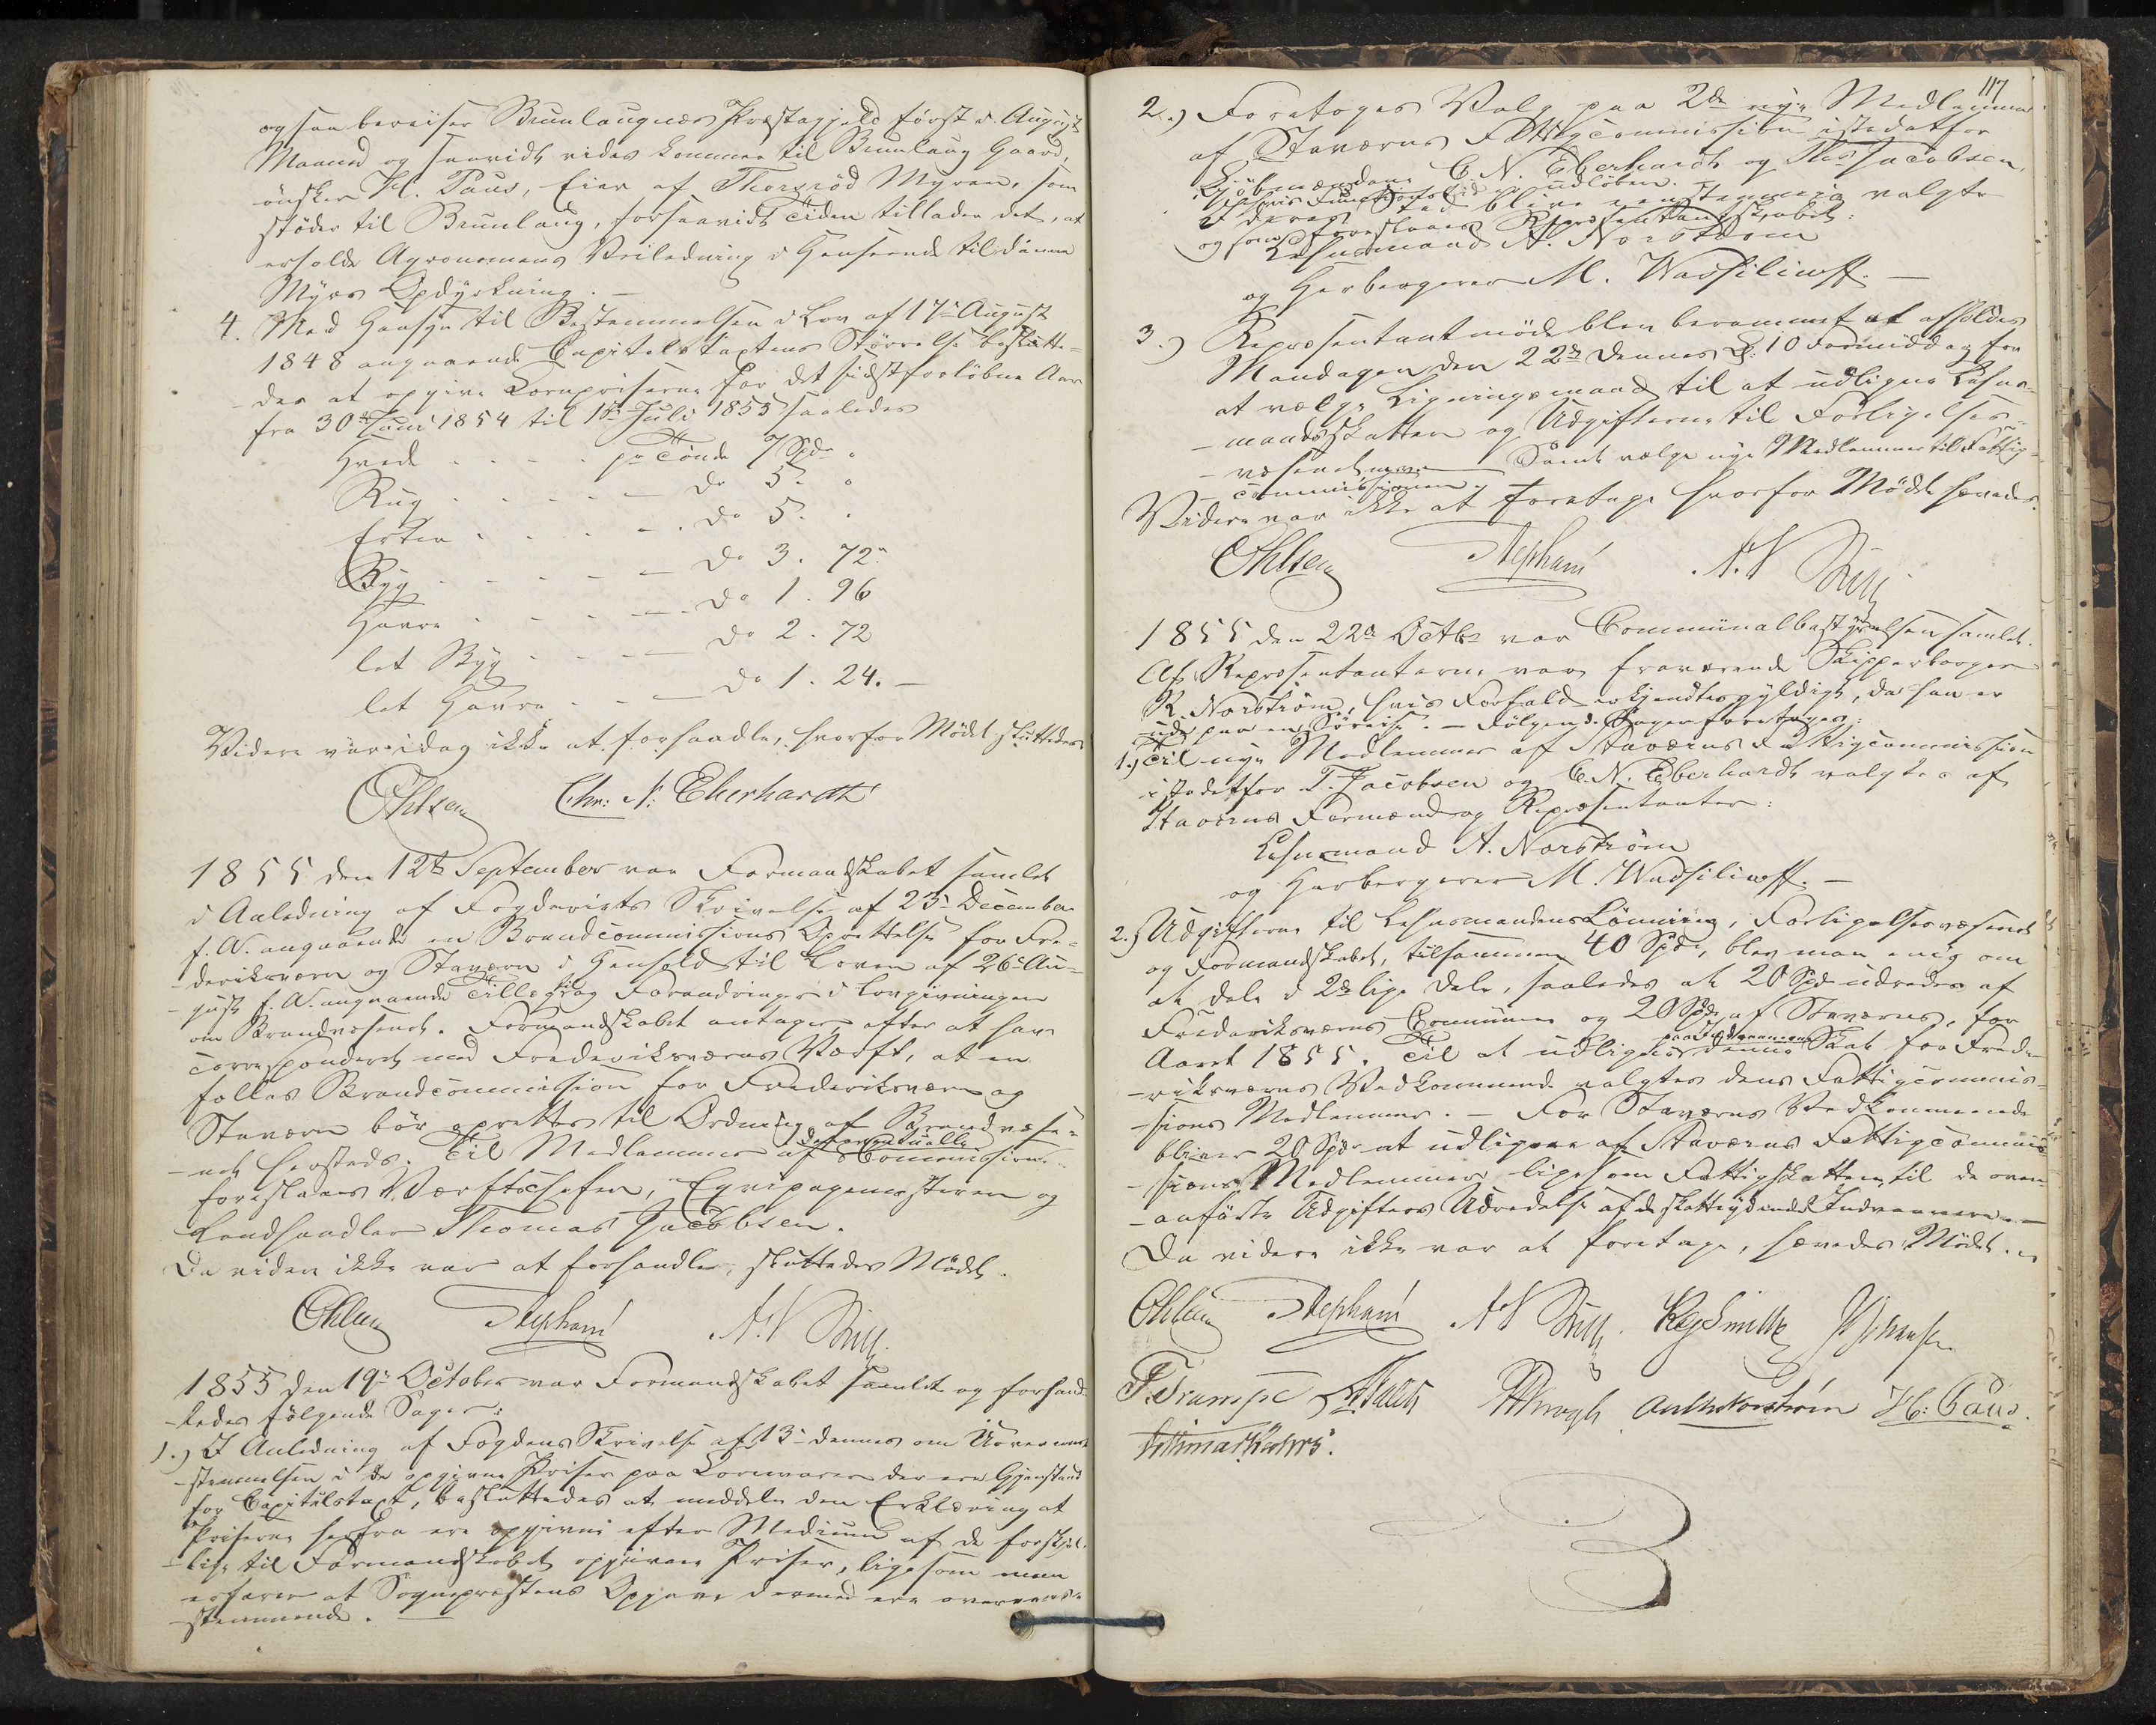 og saa bereiser Brunlaugnæs Præstegjeld først i August
Maaned og saavidt vides kommer til Brunlaug Gaard,
ønsker H. Paus, Eier af Thorsrød Myren, som
støder til Brunlaug, forsaavidt Tiden tillader det, at
erholde Agronomens Veiledning i Henseende til denne
Myrs Opdyrkning. —
4. Med Hensyn til Bestemmelsen i Lov af 17de August
1848 angaaende Capitelstaxtens Størrelse beslutte-
des at opgive Kornpriserne for det sidstforløbne Aar
fra 30te Juni 1854 til 1ste Juli 1855 saaledes
Hvede . . . . pr Tønde 7 Spd.
Rug . . . . . — do 5. "
Erter . . . . — do 5. "
Byg . . . . . — do 3. 72.
Havre . . . . — do 1. 96
let Byg . . . — do 2. 72
let Havre . . — do 1. 24. —
Videre var idag ikke at forhandle, hvorfor Mødet sluttedes
Ohlsen Chr: N: Eberhardt
1855 den 12te September var Formandskabet samlet
i Anledning af Fogderiets Skrivelse af 23de December
f. A. angaaende en Brandcommissions Oprettelse for Fre-
-deriksværn og Staværn i Henhold til Loven af 26de Au-
-gust f. A. angaaende Tillæg til og Forandringer i Lovgivningen
om Brandvæsenet. Formandskabet antager, efter at have
correspondert med Frederiksværns Værft, at en
fælles Brandcommission for Frederiksværn og
Staværn bør oprettes til Ordning af Brandvæse-
-net hersteds. Til Medlemmer af den eventuelle Commission
foreslaaes Værftschefen, Eqvipagemesteren og
Landhandler Thomas Jacobsen.
Da videre ikke var at forhandle, sluttedes Mødet.
Ohlsen Stephani A. N.
1855 den 19de October var Formandskabet samlet og forhand-
-ledes følgende Sager:
1.) I Anledning af Fogdens Skrivelse af 13de dennes om Uoverens-
-stemmelsen i de opgivne Priser paa Kornvarer der ere Gjenstand
for Capitelstaxt, besluttedes at meddele den Erklæring at
Priserne herfra ere opgivne efter Medium af de forskjel-
-lige til Formandskabet opgivne Priser, ligesom man
erfarer at Sognepræstens Opgave dermed ere overens-
-stemmende. —
117
2.) Foretoges Valg paa 2de nye Medlemmer
af Staværns Fattigcommission istedetfor
Kjøbmændene C. N. Eberhardt og Ths Jacobsen,
hvis Functionstid er udløben.
I deres Sted bleve eenstemmig valgte
og foreslaaes Repræsentantskabet:
Lehnsmand A. Norström
og Herbergerer M. Wassiliwff. —
3.) Repræsentantmøde blev berammet at afholdes
Mandagen den 22de dennes Kl: 10 Formiddag for
at vælge Ligningsmænd til at udligne Lehns-
-mandsskatten og Udgifterne til Forligelses-
-væsenet Samt vælge nye Medlemmer til Fattig-
commissionen.
Videre var ikke at foretage hvorfor Mødet hævedes.
Ohlsen Stephani A. N.
1855 den 22de Octbr var Communalbestyrelsen samlet.
Af Repræsentanterne var fraværende Skipperborger
R. Norström, hvis Forfald erkjendtes gyldigt, da han er
ude paa en Søreise. — Følgende Sager foretoges:
1.) Til nye Medlemmer af Staværns Fattigcommission
istedetfor T. Jacobsen og C. N. Eberhardt valgtes af
Staværns Formænd og Repræsentanter:
Lehnsmand A. Norström
og Herbergerer M. Wassiliwff. —
2.) Udgifterne til Lehnsmandens Lønning, Forligelsesvæsenet
og Formandskabet, tilsammen 40 Spd, blev man enig om
at dele i 2de lige Dele, saaledes at 20 Spd udredes af
Frederiksværns Commune og 20 Spd af Staværns, for
Aaret 1855. Til at udligne denne Skat paa Indvaanerne for Frede-
-riksværns Vedkommende valgtes dens Fattigcommis-
-sions Medlemmer. — For Staværns Vedkommende
bliver 20 Spd at udligne af Staværns Fattigcommis-
-sions Medlemmer ligesom Fattigskatten, til de oven-
-anførte Udgifters Udredelse af de skatteydende Indvaanere. —
Da videre ikke var at foretage, hævedes Mødet.
Ohlsen Stephani A. N. Johansen
F. Trampe Krogh Norström H: Paus.